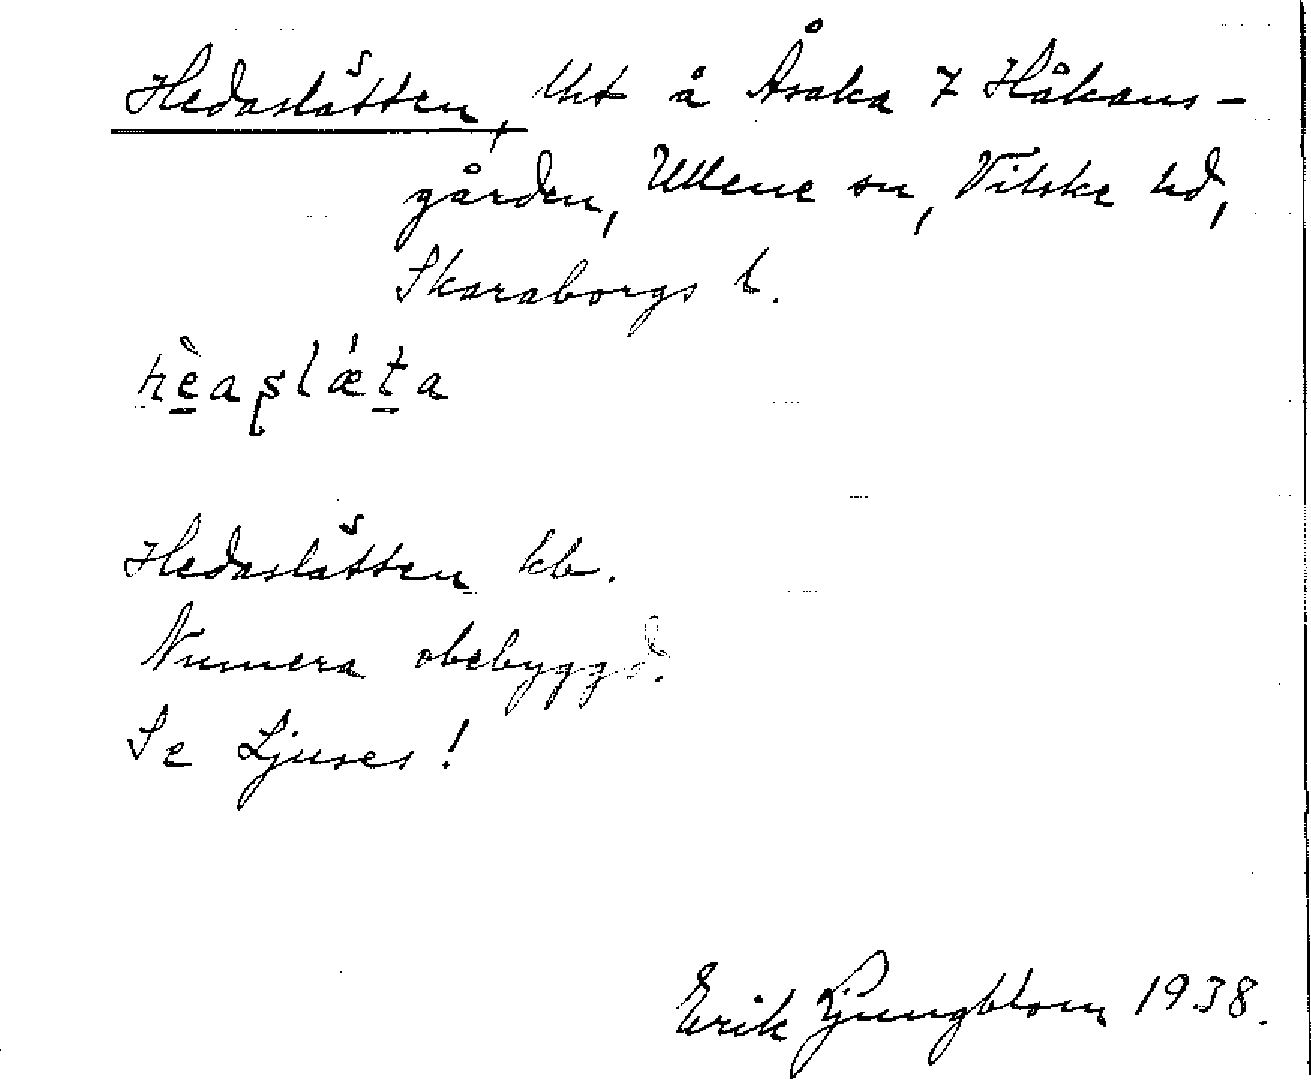 Hedaslätten, lht å Åsaka 7 Håkans-
gården, Ullene sn, Vilske hd,
Skaraborgs l.
hèaslǽta
Hedaslätten kb.
Numera obebyggd.
Se Ljuses!
Erik Ljungblom 1938.